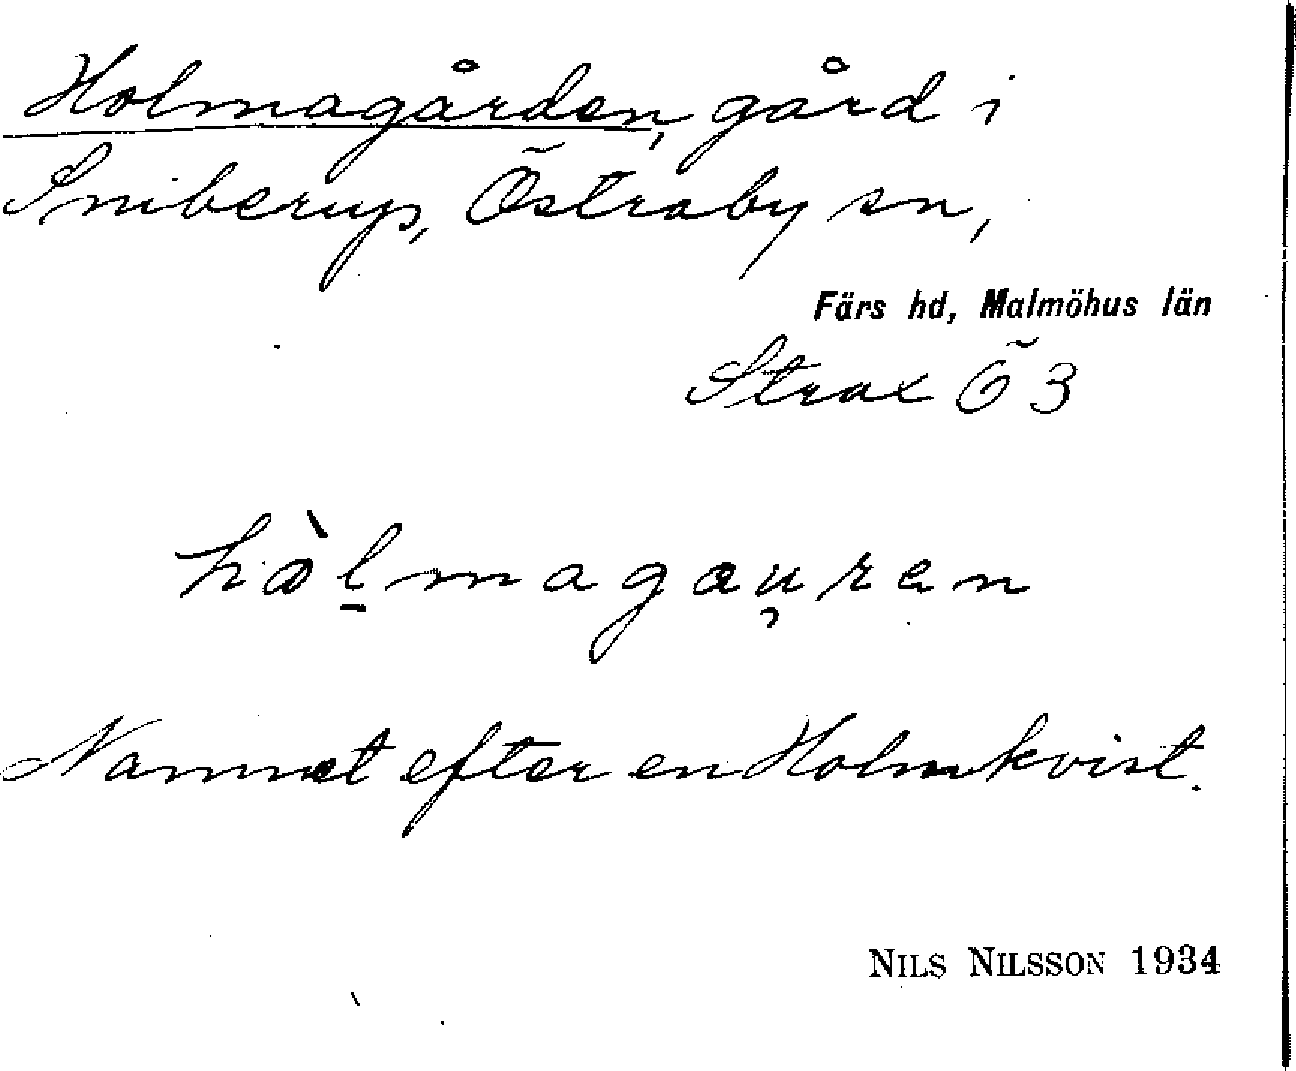 Holmagården, gård i
Sniberup, Östraby sn,
Färs hd, Malmöhus län
Strax Ö 3
hòl̠magau̡ren
Namnet efter en Holmkvist.
NILS NILSSON 1934